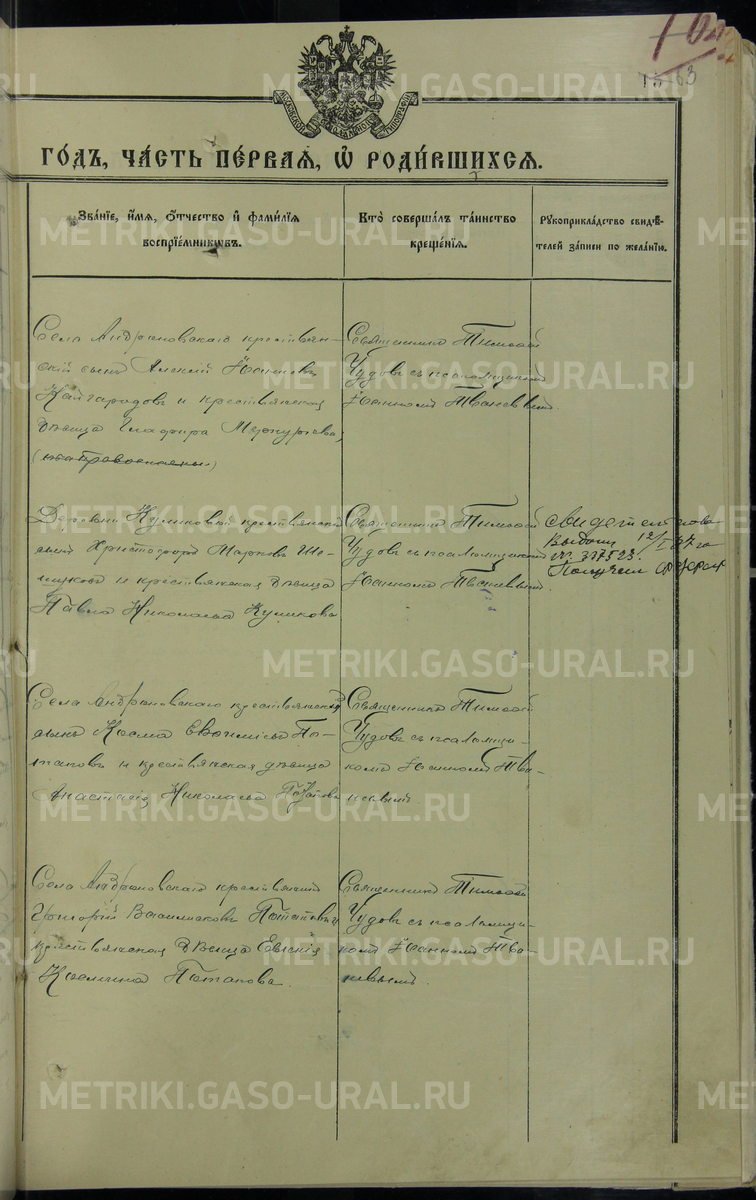 63
ГО́ДЪ, ЧА́СТЬ ПЕ́РВАЯ, Ѡ РОДИ́ВШИХСЯ.
Зва́нїе, и́мя, о́тчество и҆ фами́лїя
воспрїе́мниковъ.
Кто̀ соверша́лъ та́инство
креще́нїя.
Рꙋкоприкла́дство свидѣ́-
телей за́писи по жела́нїю.
Села Андроновскаго крестьян-
скiй сынъ Алексiй Iоанновъ
Кайгородовъ и крестьянская
дѣвица Глафира Меркурьева
(оба православны)
Священникъ Тимофей
Чудовъ съ псаломщикомъ
Iоанномъ
Деревни Куликовой крестьянскiй
сынъ Христофоръ Марковъ
и крестьянская дѣвица
Павла Николаева Куликова
Священникъ Тимофей
Чудовъ съ псаломщикомъ
Iоанномъ
Свидетельство
выдано 12/I
№ 337523.
Получил
Села Андроновскаго крестьянскiй
сынъ Косма Евѳимiевъ По-
таповъ и крестьянская дѣвица
Анастасiя Николаева Потапова
Священникъ Тимофей
Чудовъ съ псаломщи-
комъ Iоанномъ
Села Андроновскаго крестьянинъ
Григорiй Потаповъ и
крестьянская дѣвица Евгенiя
Космина Потапова.
Священникъ Тимофей
Чудовъ съ псаломщи-
комъ Iоанномъ
METRIKI.GASO-URAL.RU